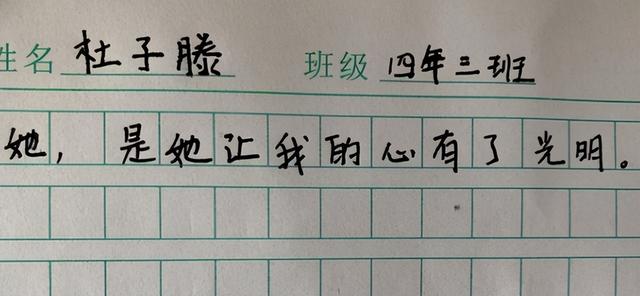 姓名 杜子腾 班级 四年三班
她，是她让我的心有了光明。